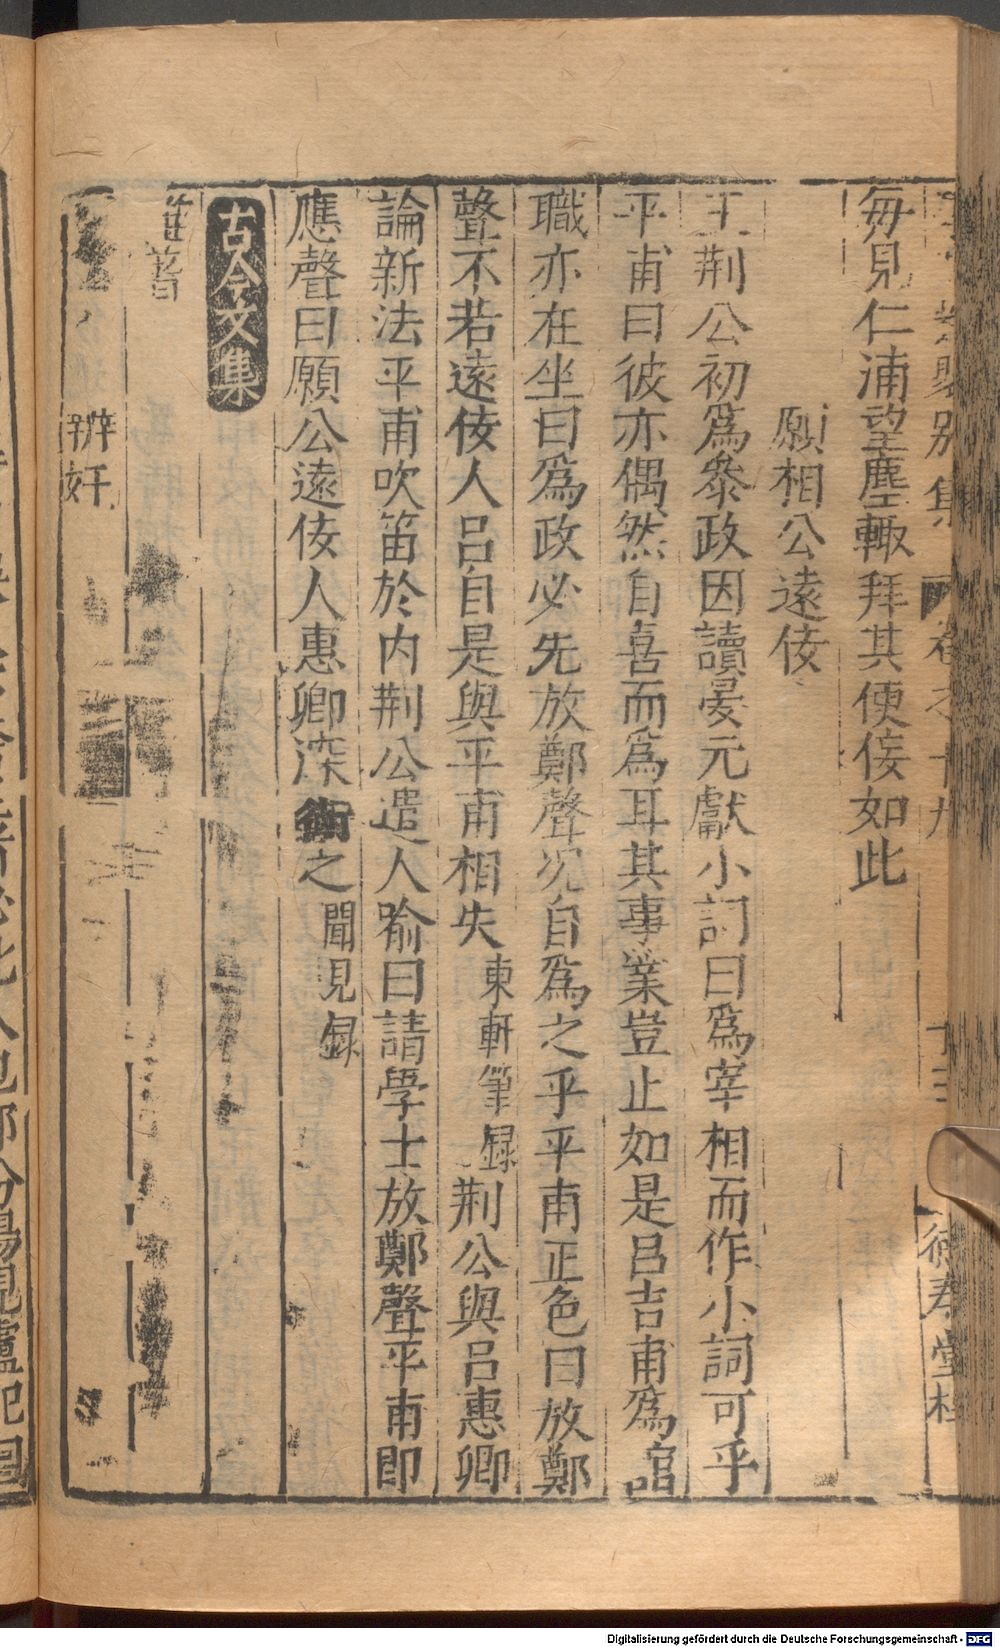 每見仁浦望塵輙拜其便侫如此
願相公遠侫
王荆公初爲叅政因讀晏元獻小詞曰爲宰相而作小詞可乎
平甫曰彼亦偶然自喜而爲耳其事業豈止如是吕吉甫爲舘
職亦在坐曰爲政必先放鄭聲况自爲之乎平甫正色曰放鄭
聲不若遠侫人吕自是與平甫相失東軒筆録荆公與吕惠卿
論新法平甫吹笛於内荆公遣人喻曰請學士放鄭聲平甫即
應聲曰願公遠侫人惠卿深銜之聞見録
古今文集
雜著
辨奸
Digitalisierung gefördert durch die Deutsche Forschungsgemeinschaft - DFG